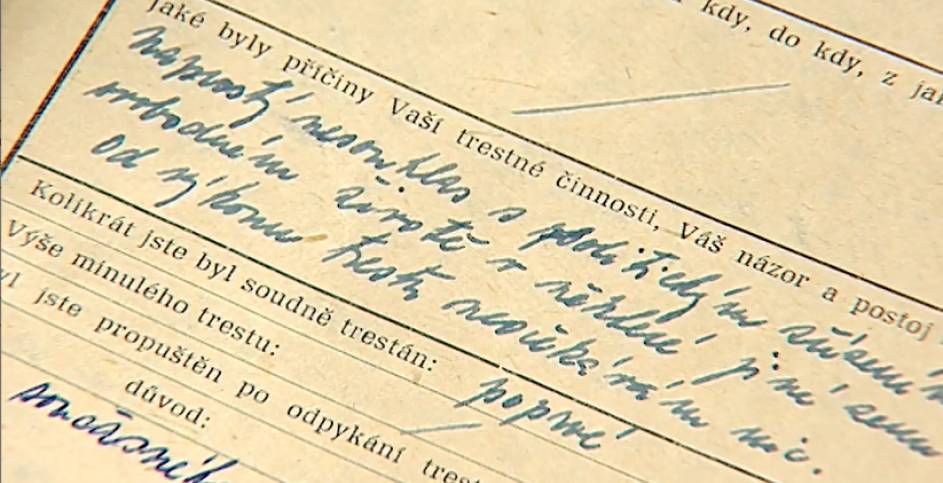 kdy, do kdy, z jak
Jaké byly příčiny Vaší trestné činnosti, Váš názor a postoj
naprostý nesouhlas s politickým zřízením
svobodném životě v některé jiné zemi
Od výkonu trestu neočekávám nic.
Kolikrát jste byl soudně trestán: poprvé
Výše minulého trestu:
jste propuštěn po odpykání trest
důvod: